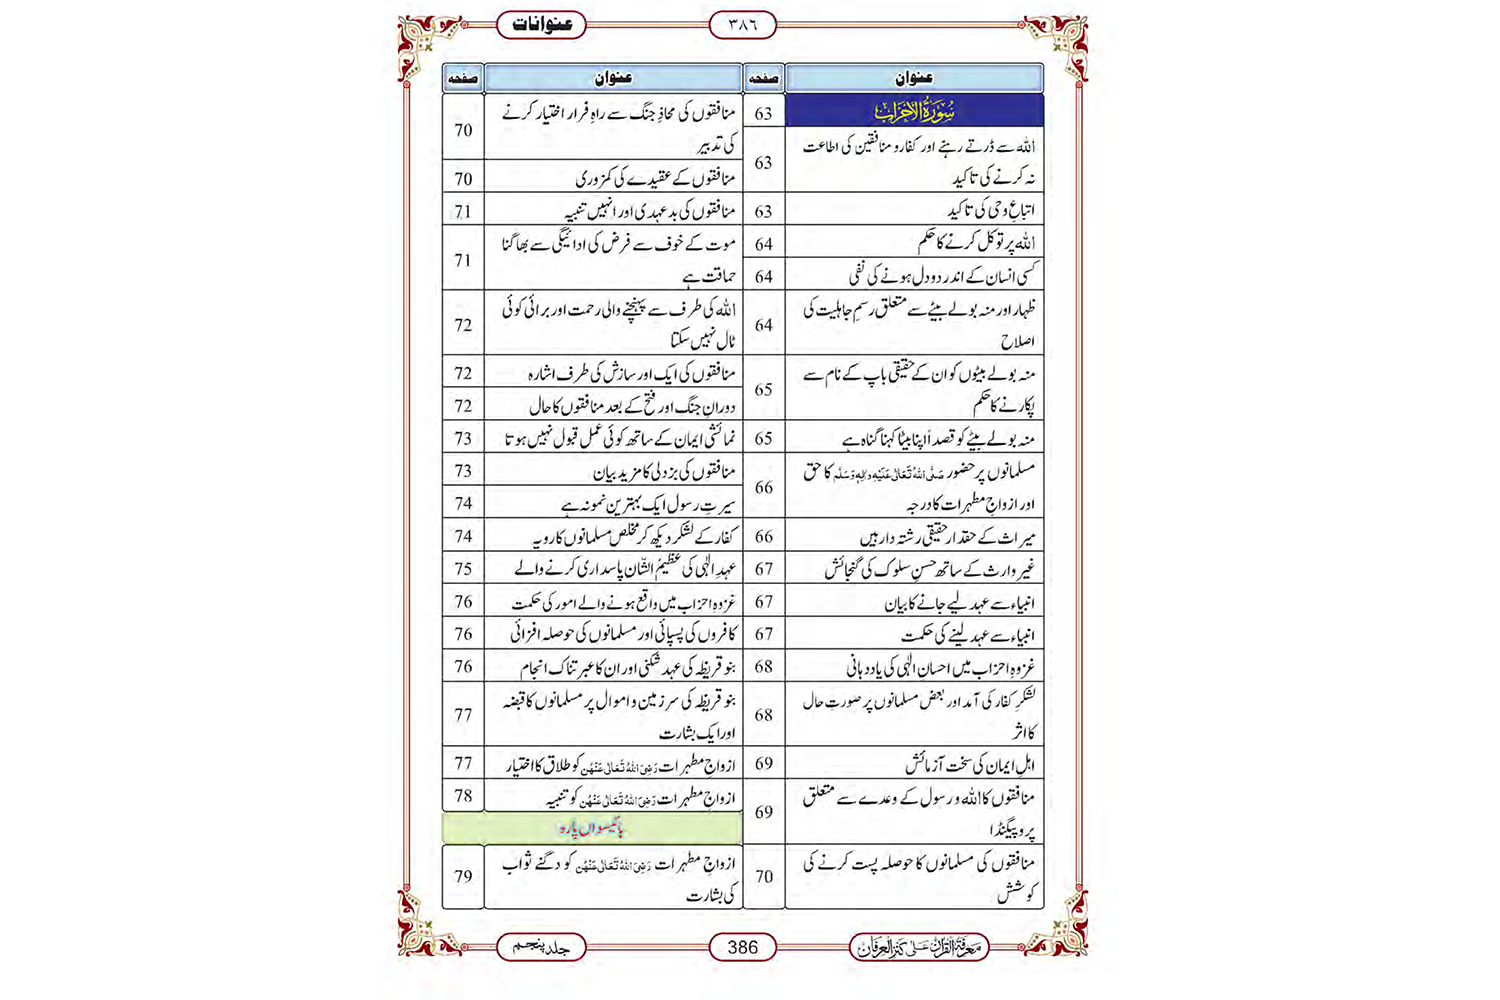 عنوانات
۳۸٦
عنوان صفحہ
سُوْرَۃُ الْاَحْزَاب 63
اللہ سے ڈرتے رہنے اور کفار و منافقین کی اطاعت
نہ کرنے کی تاکید 63
اتباعِ وحی کی تاکید 63
اللہ پر توکل کرنے کا حکم 64
کسی انسان کے اندر دو دل ہونے کی نفی 64
ظہار اور منہ بولے بیٹے سے متعلق رسمِ جاہلیت کی
اصلاح 64
منہ بولے بیٹوں کو ان کے حقیقی باپ کے نام سے
پکارنے کا حکم 65
منہ بولے بیٹے کو قصداً اپنا بیٹا کہنا گناہ ہے 65
مسلمانوں پر حضور صَلَّی اللہُ تَعَالٰی عَلَیْہِ وَاٰلِہٖ وَسَلَّم کا حق
اور ازواجِ مطہرات کا درجہ 66
میراث کے حقدار حقیقی رشتہ دار ہیں 66
غیر وارث کے ساتھ حسنِ سلوک کی گنجائش 67
انبیاء سے عہد لیے جانے کا بیان 67
انبیاء سے عہد لینے کی حکمت 67
غزوہِ احزاب میں احسانِ الٰہی کی یاددہانی 68
لشکرِ کفار کی آمد اور بعض مسلمانوں پر صورتِ حال
کا اثر 68
اہلِ ایمان کی سخت آزمائش 69
منافقوں کا اللہ و رسول کے وعدے سے متعلق
پروپیگنڈا 69
منافقوں کی مسلمانوں کا حوصلہ پست کرنے کی
کوشش 70
عنوان صفحہ
منافقوں کی محاذِ جنگ سے راہِ فرار اختیار کرنے
کی تدبیر 70
منافقوں کے عقیدے کی کمزوری 70
منافقوں کی بدعہدی اور انہیں تنبیہ 71
موت کے خوف سے فرض کی ادائیگی سے بھاگنا
حماقت ہے 71
اللہ کی طرف سے پہنچنے والی رحمت اور برائی کوئی
ٹال نہیں سکتا 72
منافقوں کی ایک اور سازش کی طرف اشارہ 72
دورانِ جنگ اور فتح کے بعد منافقوں کا حال 72
نمائشی ایمان کے ساتھ کوئی عمل قبول نہیں ہوتا 73
منافقوں کی بزدلی کا مزید بیان 73
سیرتِ رسول ایک بہترین نمونہ ہے 74
کفار کے لشکر دیکھ کر مخلص مسلمانوں کا رویہ 74
عہدِ الٰہی کی عظیمُ الشّان پاسداری کرنے والے 75
غزوہِ احزاب میں واقع ہونے والے امور کی حکمت 76
کافروں کی پسپائی اور مسلمانوں کی حوصلہ افزائی 76
بنو قریظہ کی عہد شکنی اور ان کا عبرتناک انجام 76
بنو قریظہ کی سرزمین و اموال پر مسلمانوں کا قبضہ
اور ایک بشارت 77
ازواجِ مطہرات رَضِیَ اللہُ تَعَالٰی عَنْہُن کو طلاق کا اختیار 77
ازواجِ مطہرات رَضِیَ اللہُ تَعَالٰی عَنْہُن کو تنبیہ 78
بائیسواں پارہ
ازواجِ مطہرات رَضِیَ اللہُ تَعَالٰی عَنْہُن کو دگنے ثواب
کی بشارت 79
معرفۃ القرآن علٰی کنز العرفان
386
جلد پنجم